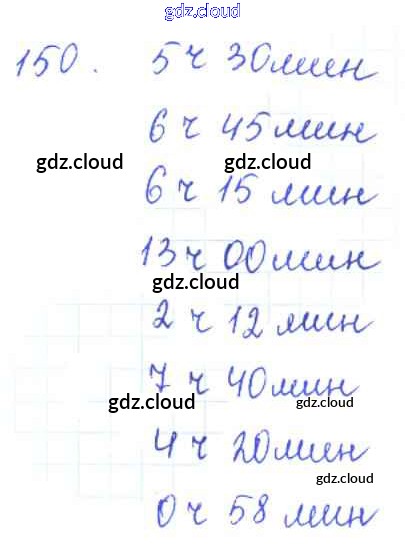 gdz.cloud
150. 5 ч 30 мин
6 ч 45 мин
gdz.cloud gdz.cloud
6 ч 15 мин
13 ч 00 мин
gdz.cloud
2 ч 12 мин
7 ч 40 мин
gdz.cloud gdz.cloud
4 ч 20 мин
gdz.cloud
0 ч 58 мин